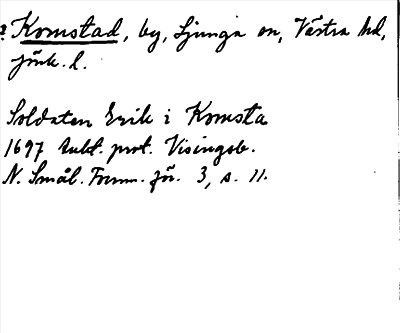 ? Komstad, by, Ljunga sn, Västra hd,
Jönk. l.
Soldaten Erik i Komsta
1697 prot. Visingsb.
N. Smål. Fornm. för. 3, s. 11.